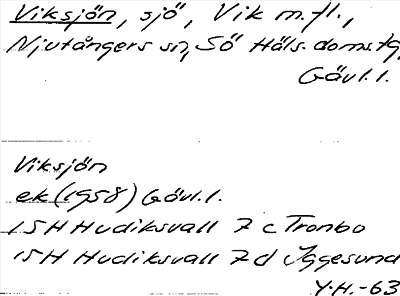 Viksjön, sjö, Vik m.fl.,
Njutångers sn, Sö Häls. doms tg,
Gävl.l.
Viksjön
ek (1958) Gävl.l.
15H Hudiksvall 7 c Tronbo
15H Hudiksvall 7d Iggesund
Y.H.-63